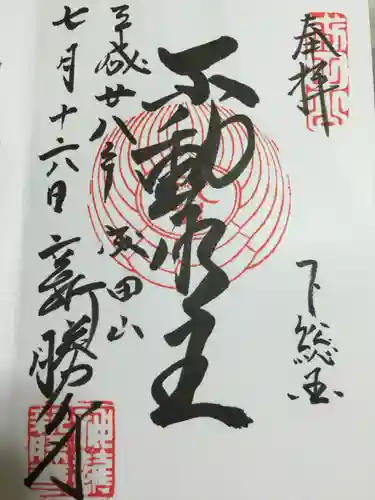 奉拝
下総国
不動明王
平成廿八年 成田山
七月十六日 新勝寺